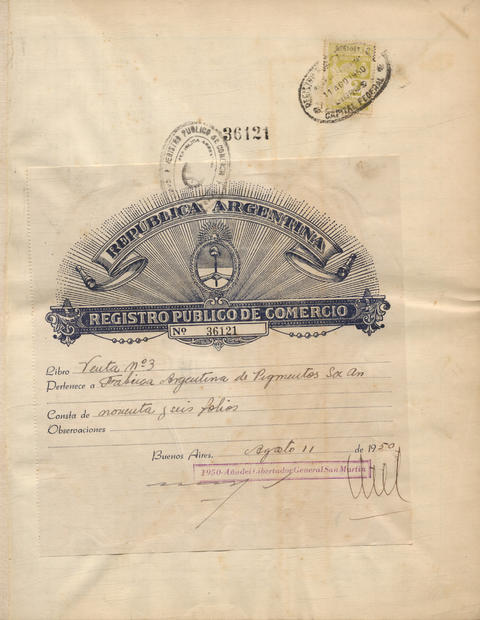 REGISTRO
11 AGO 1950
CAPITAL FEDERAL
36121
REGISTRO PUBLICO DE COMERCIO
REPUBLICA ARGENTINA
REPUBLICA ARGENTINA
REGISTRO PUBLICO DE COMERCIO
No 36121
Libro Venta nº3
Pertenece a Fabrica Argentina de Pigmentos Soc An
Consta de noventa y seis folios
Observaciones
Buenos Aires, Agosto 11 de 1950
1950-Año del Libertador General San Martin